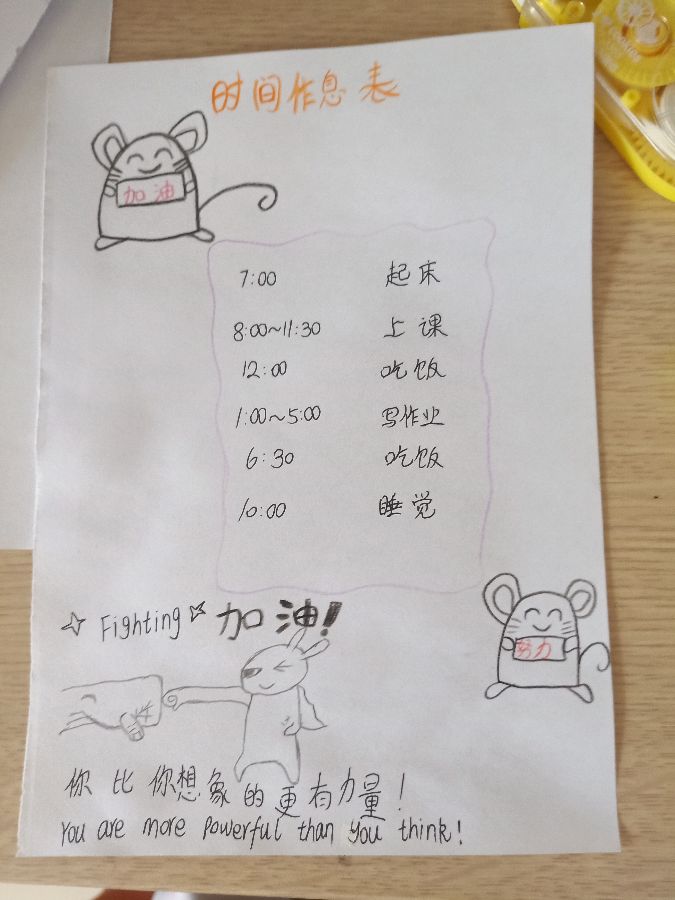 时间作息表
加油
7:00 起床
8:00~11:30 上课
12:00 吃饭
1:00~5:00 写作业
6:30 吃饭
10:00 睡觉
Fighting 加油!
努力
你比你想象的更有力量!
You are more powerful than you think!